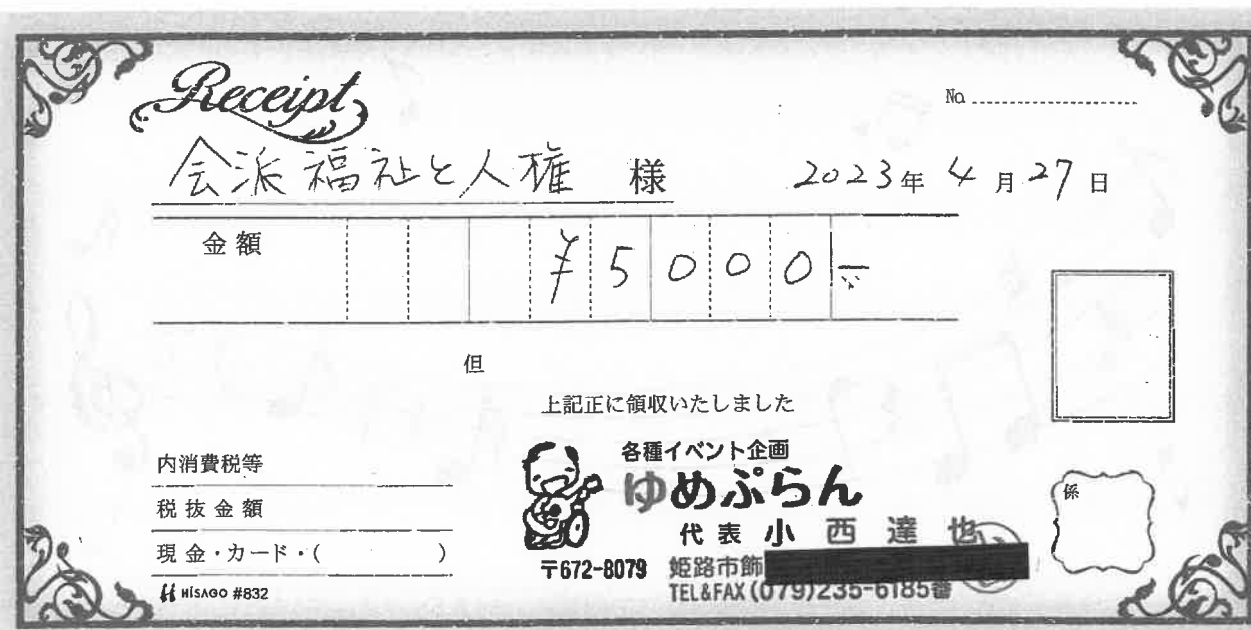 Receipt
No.
会派福祉と人権 様
2023年 4月27日
金額 ¥5000-
但
上記正に領収いたしました
内消費税等
税抜金額
現金・カード・( )
HISAGO #832
各種イベント企画
ゆめぷらん
代表 小西達也
〒672-8079 姫路市飾
TEL&FAX (079)235-6185番
係